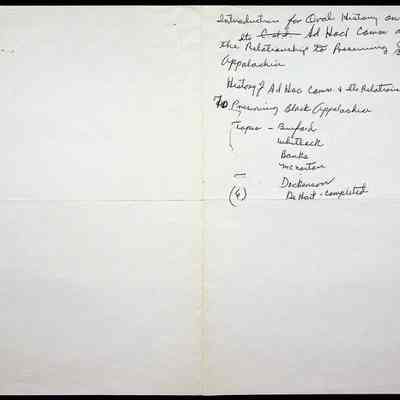 Introduction for Oral History on
Its Ad Hoc Comm a
the Relationship to Preserving B
Appalachia
History of Ad Hoc Comm. & Its Relation
To Preserving Black Appalachia
Tapes - Burford
Whiteback
Banks
McNorton
Dickenson
(6) DeHart - completed